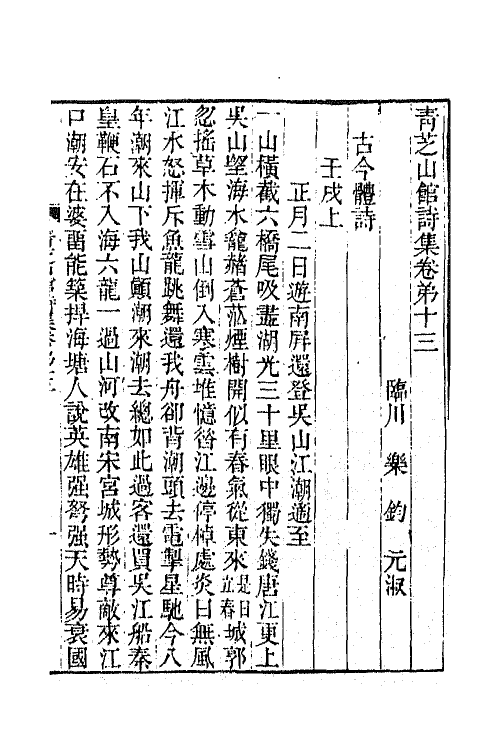 青芝山館詩集卷弟十三
臨川　樂　鈞　元淑
古今體詩
壬戌上
正月二日遊南屛還登吳山江潮適至
一山橫截六橋尾吸盡湖光三十里眼中獨失錢唐江更上
吳山望海水龕赭蒼茫煙樹開似有春氣從東來是日立春城郭
忽搖草木動雪山倒入寒雲堆憶昝江邊停棹處炎日無風
江水怒揮斥魚龍跳舞還我舟卻背潮頭去電掣星馳今八
年潮來山下我山顚潮來潮去總如此過客還買吳江船秦
皇鞭石不入海六龍一過山河改南宋宮城形勢尊敵來江
口潮安在婆畱能築捍海塘人說英雄强弩强天時易衰國